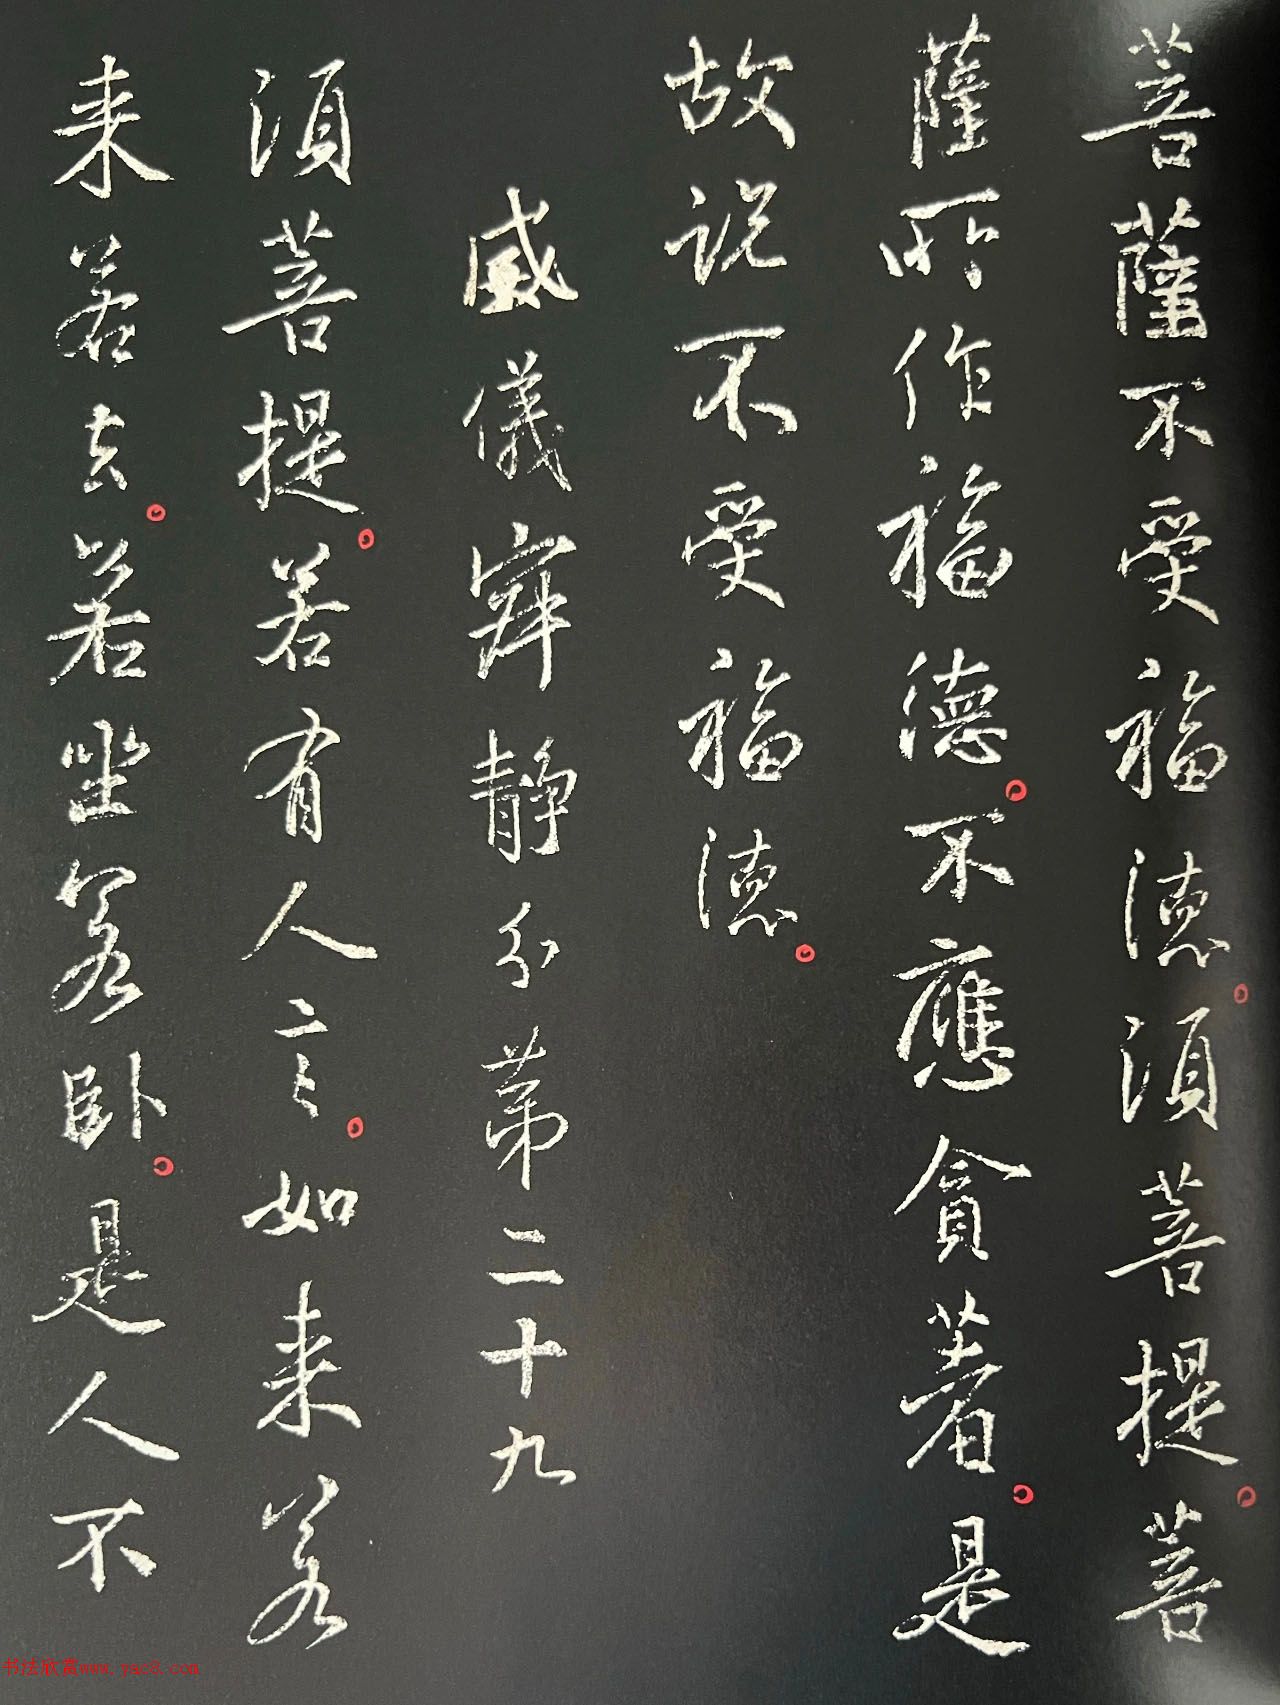 菩薩不受福德。須菩提。菩
薩所作福德。不應貪著。是
故说不受福德。
威儀寂静分第二十九
須菩提。若有人言。如来若
来若去。若坐若卧。是人不
书法欣赏www.yac8.com